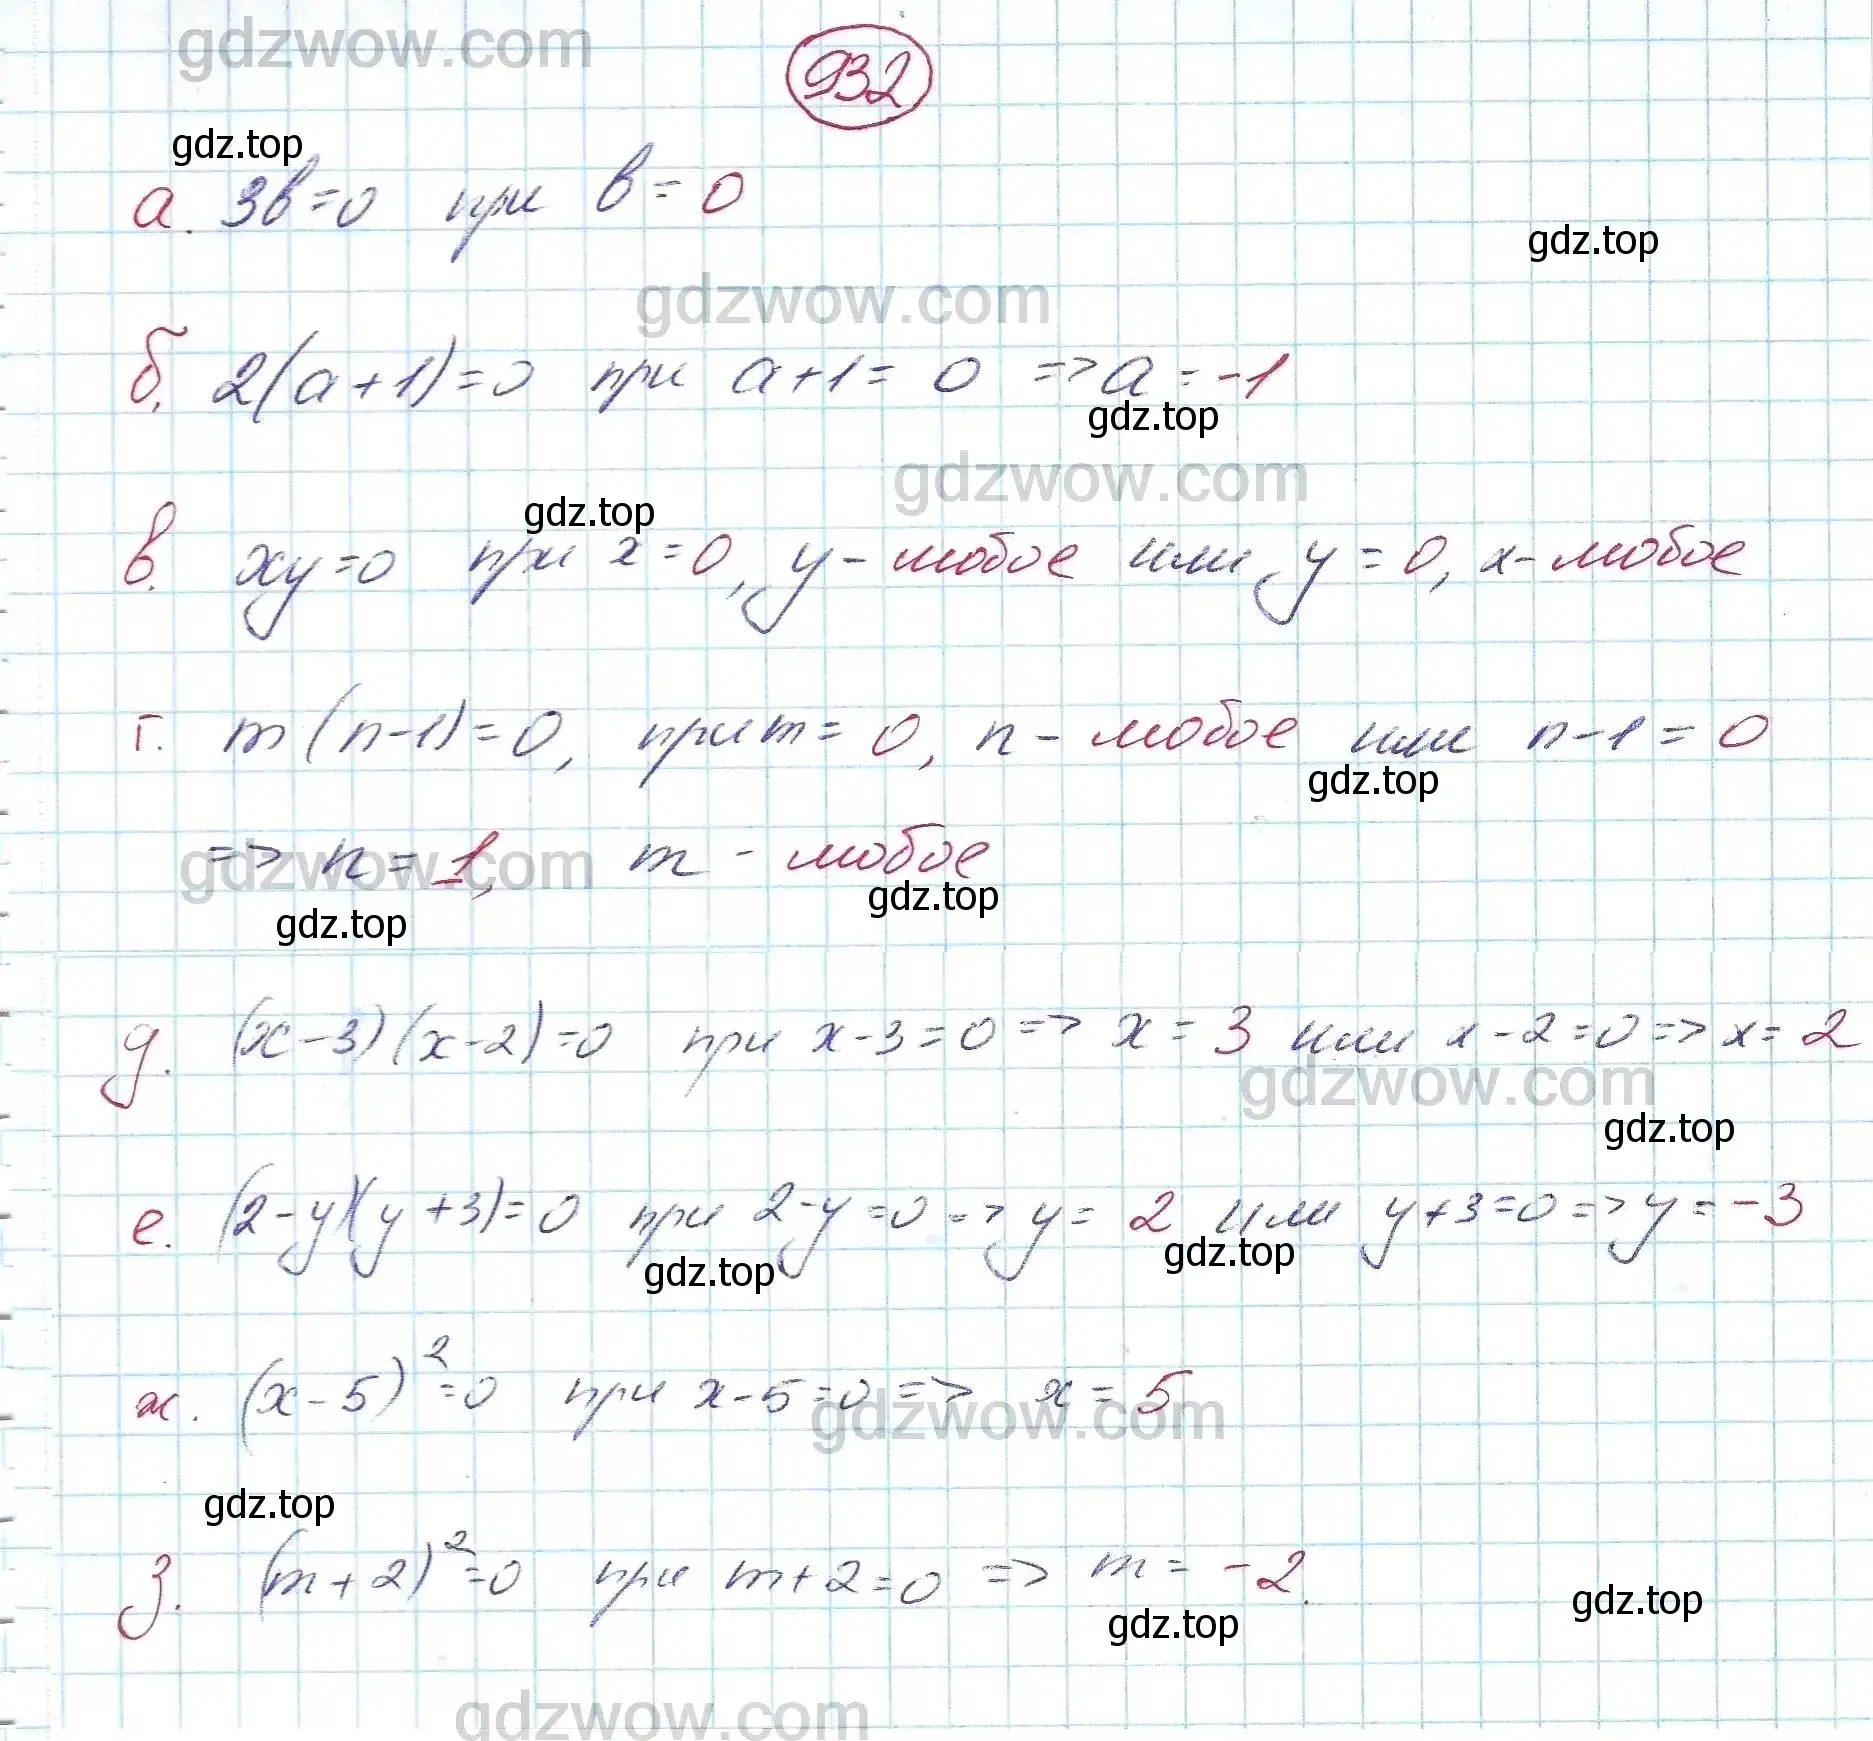 gdzwow.com
932
gdz.top
а. 3b=0 при b=0
gdz.top
gdzwow.com
б. 2(a+1)=0 при a+1=0 => a=-1
gdz.top
gdzwow.com
gdz.top
в. xy=0 при x=0, y- любое или y=0, x- любое
г. m(n-1)=0, при m=0, n- любое или n-1=0
gdz.top
=> n=1, m - любое
gdzwow.com
gdz.top
gdz.top
д. (x-3)(x-2)=0 при x-3=0 => x=3 или x-2=0 => x=2
gdzwow.com
gdz.top
е. (2-y)(y+3)=0 при 2-y=0 => y=2 или y+3=0 => y=-3
gdz.top
gdz.top
ж. (x-5)²=0 при x-5=0 => x=5
gdzwow.com
gdz.top
з. (m+2)²=0 при m+2=0 => m=-2.
gdz.top
gdz.top
gdzwow.com